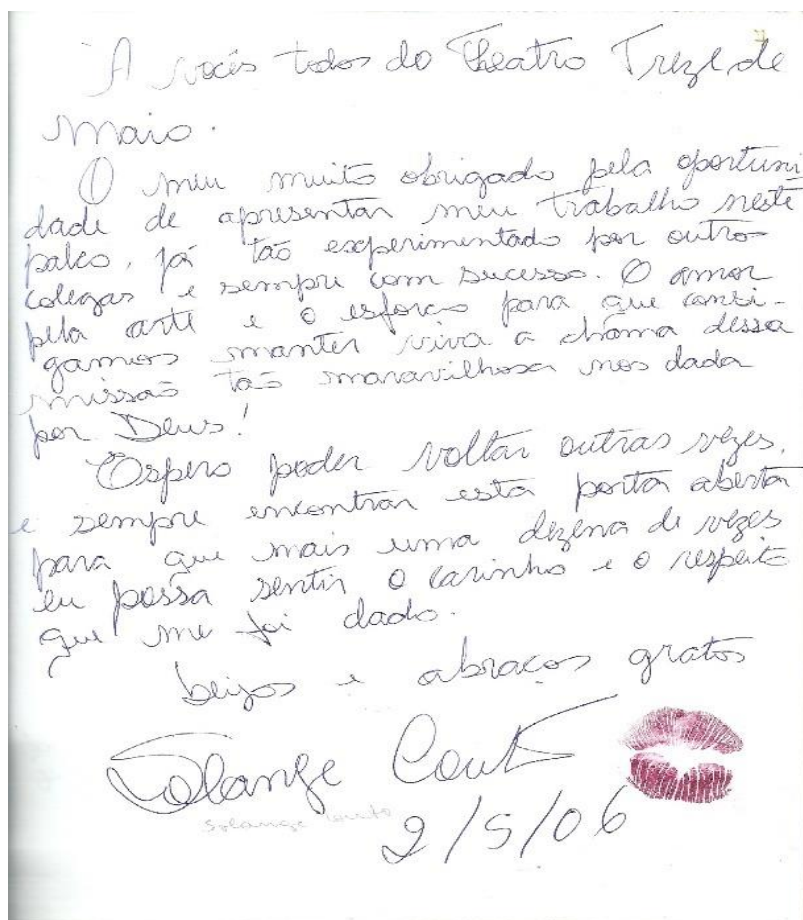 A vocês todos do Theatro Treze de
Maio.
O meu muito obrigado pela oportuni
dade de apresentar meu trabalho neste
palco, já tão experimentado por outros
colegas e sempre com sucesso. O amor
pela arte e o esforço para que consi-
gamos manter viva a chama dessa
missão tão maravilhosa nos dada
por Deus!
Espero poder voltar outras vezes,
e sempre encontrar esta porta aberta
para que mais uma dezena de vezes
eu possa sentir o carinho e o respeito
que me foi dado.
beijos e abraços gratos
Solange Couto
solange couto
2/5/06